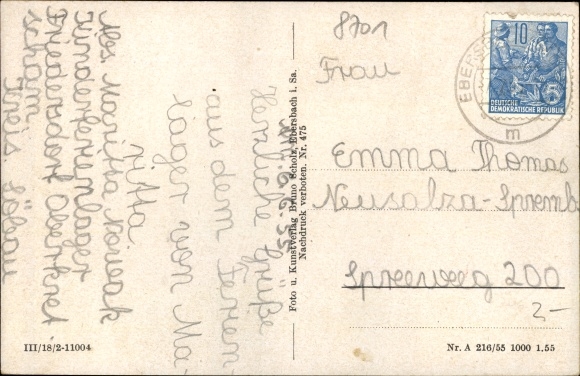 8701
Frau
Emma Thomas
Neusalza-Spremb
Spreeweg 200
2-
10
5
DEUTSCHE
DEMOKRATISCHE REPUBLIK
EBERS
m
Foto u. Kunstverlag Bruno Scholz, Ebersbach i. Sa.
Nachdruck verboten. Nr. 475
Herzliche Grüße
aus dem Ferien
lager von Ma-
ritta.
Abs. Maritta Nowak
Kinderferienlager
Friedersdorf Oberkret
scham
Kreis Löbau
III/18/2-11004
Nr. A 216/55 1000 1.55